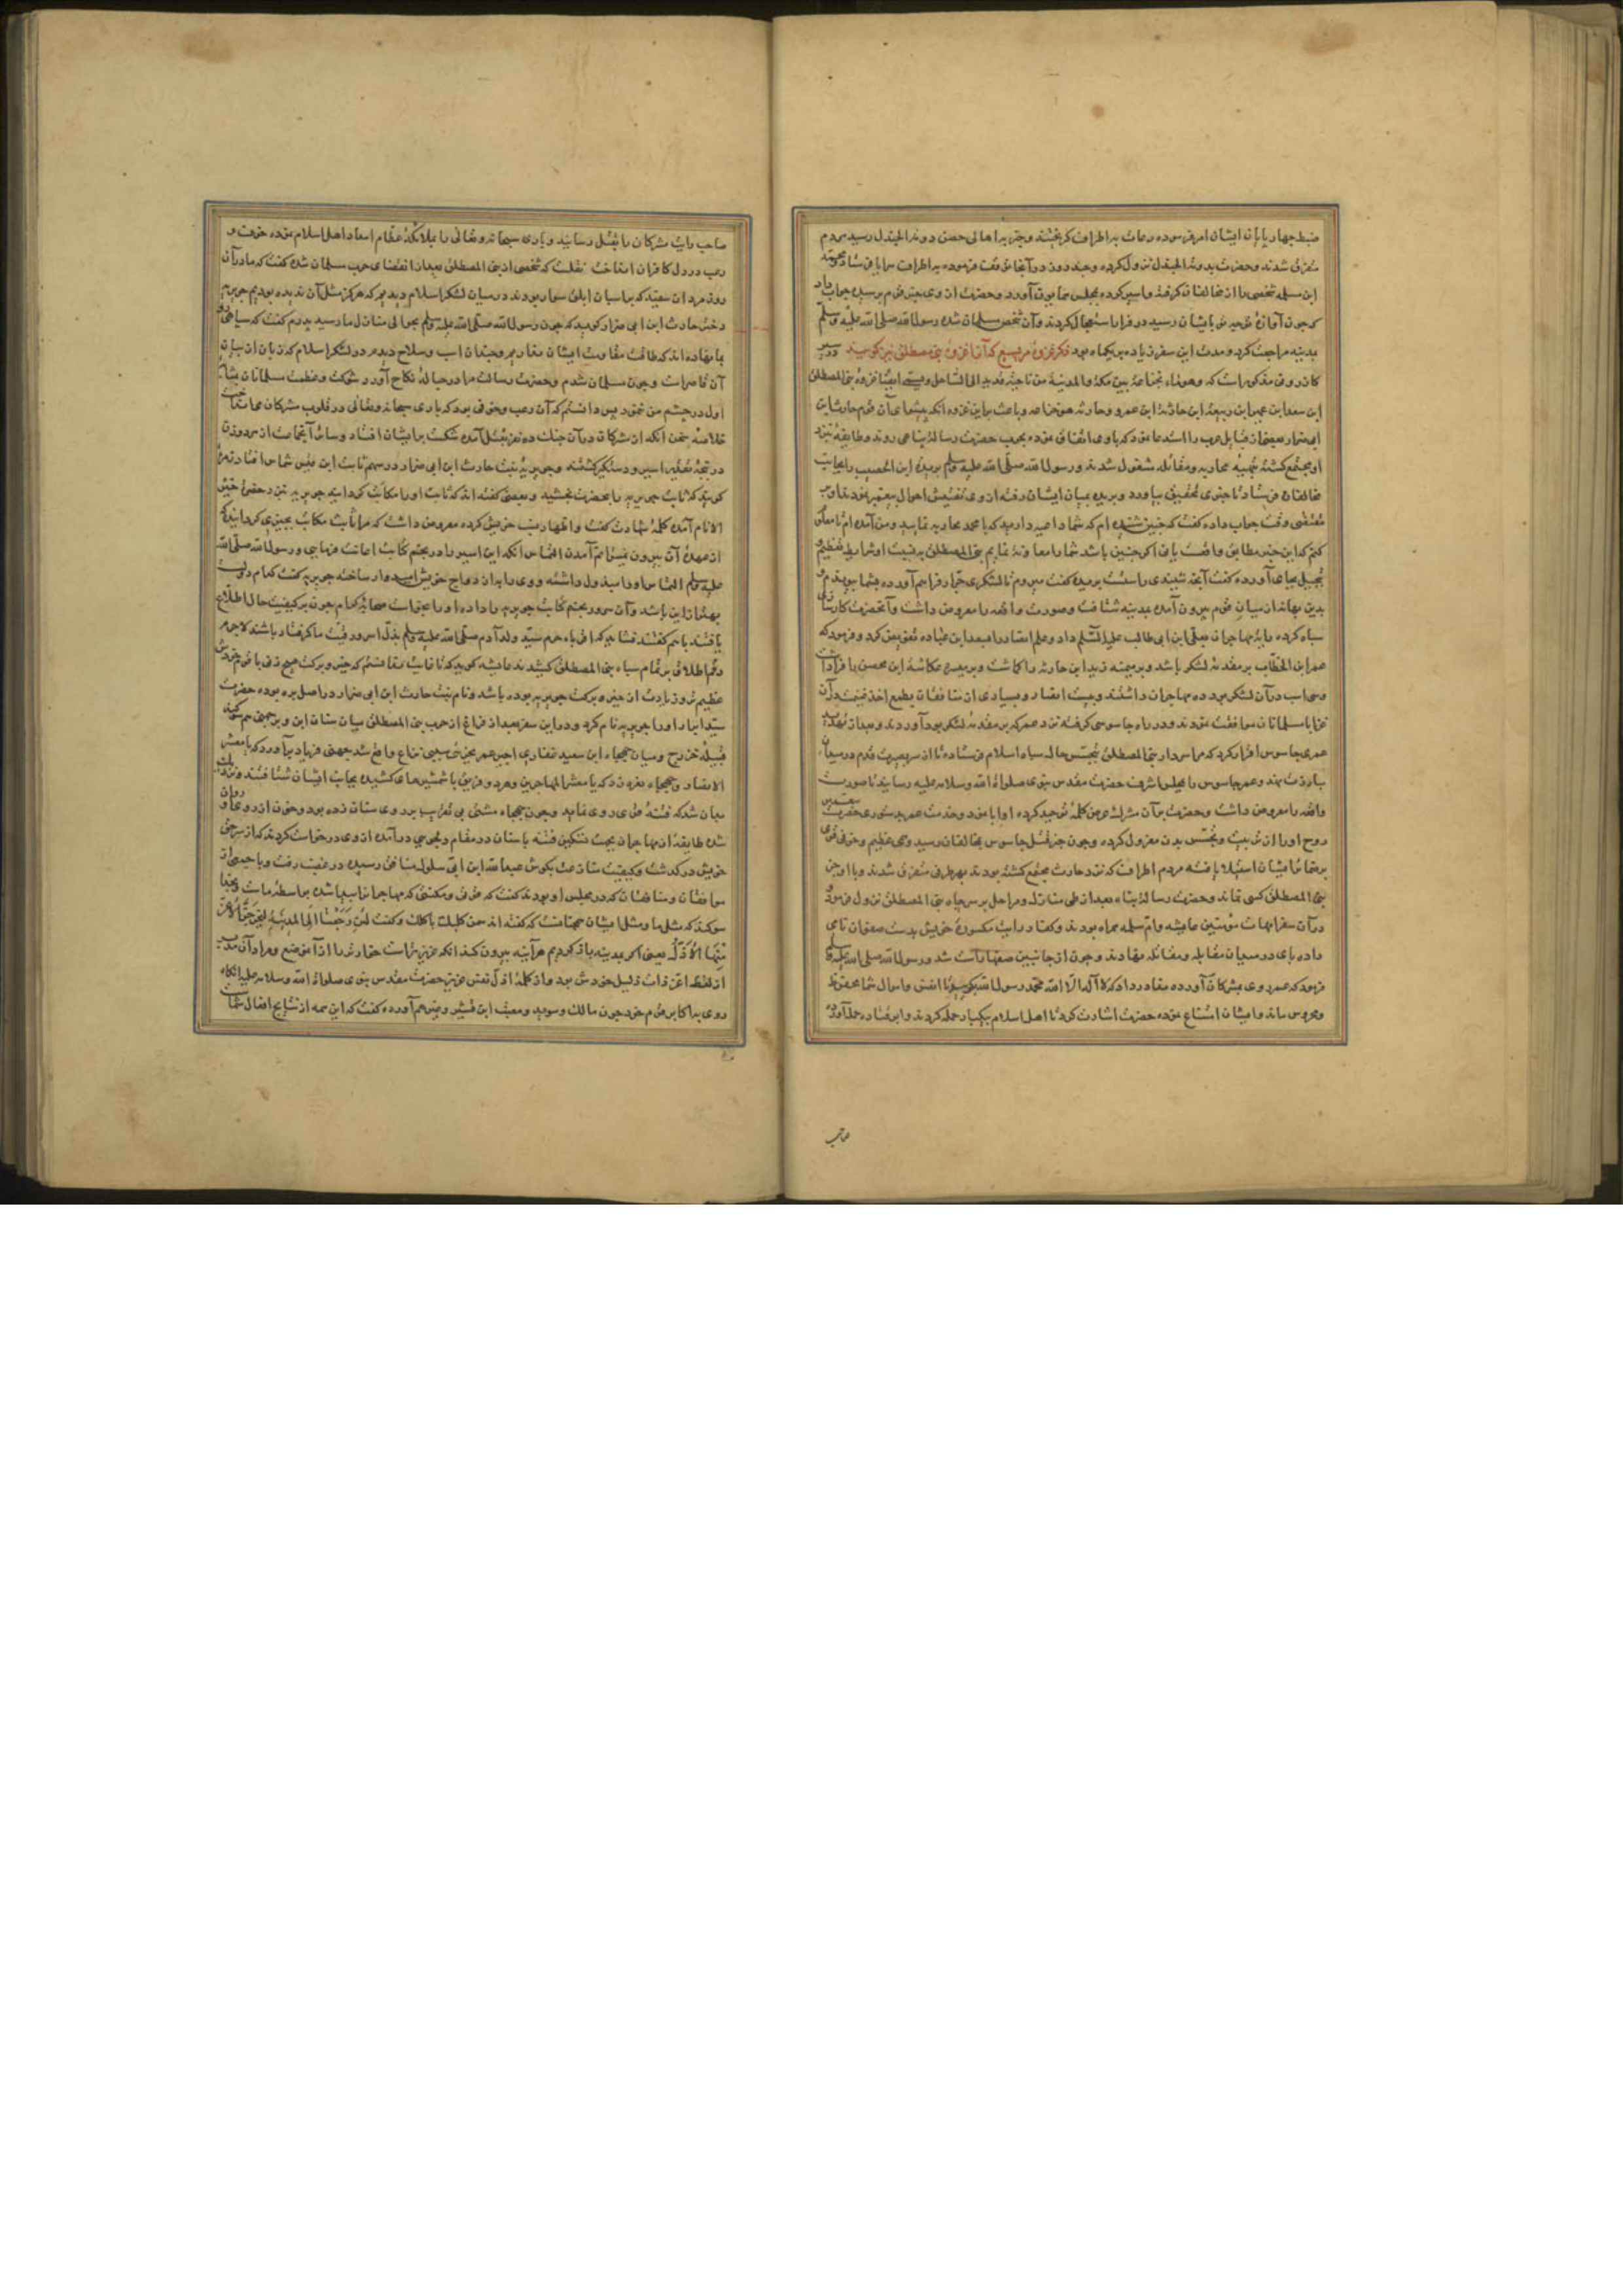 ضبط چهارپایان ایشان امر فرموده رعات به اطراف کریختند و خبر به اهالی حصن دومة الجندل رسید مردم
متفرق شدند و حضرت بدومة الجندل نزول کرده و چند روز در آنجا توقف فرموده به اطراف سرایا فرستاد محمد
ابن مسلمه شخصی را از مخالفان کرفته و اسیر کرده بمجلس همایون آورد و حضرت از وی خبر قوم پرسید جواب داد
که چون آوازه توجه بایشان رسید در فرار استعجال کردند و آن شخص مسلمان شده رسول الله صلی الله علیه وسلم
بمدینه مراجعت کرد و مدت این سفر زیاده بر یکماه بود ذکر غزوهٔ مریسیع که آنرا غزوهٔ بنی مصطلق نیز کویند در سیر
کازرونی مذکور است که وهو ماء لخزاعة بین مکة والمدینة من ناحیة قدید الی الساحل ویسمی ایضا غزوة بنی المصطلق
ابن سعد ابن عمرو ابن ربیعة ابن حارثة ابن عمرو و حارثه هو خزاعه و باعث بر این غزوه آنکه پیشوای آن قوم حارث ابن
ابی ضرار بعضی از قبایل عرب را استدعا نمود که با وی اتفاق نموده بحرب حضرت رسالة پناهی روند و طایفهٔ نزد
او مجتمع کشته بتهیهٔ محاربه و مقاتله مشغول شدند و رسول الله صلی الله علیه وسلم بریدة ابن الحصیب را بجانب
مخالفان فرستاد تا خبری تحقیق بیاورد و بریده بمیان ایشان رفته از وی تفتیش احوال پیغمبر نمودند او بر
مقتضی وقت جواب داده کفت که چنین شنیده ام که شما داعیه دارید که با محمد محاربه نمایید و من آمده ام تا معلوم
کنم که این خبر مطابق واقعست یا نی اکر چنین باشد شما را معاونة نمایم بنی المصطلق به نسبت او شرایط تعظیم و
تبجیل بجای آورده کفت آنچه شنیدی راست است بریده کفت میروم تا لشکری جرار فراهم آورده بشما پیوندم و
بدین بهانه از میان قوم بیرون آمده بمدینه شتافت و صورت واقعه را معروض داشت و آنحضرت کارسازی
سپاه کرده رایة مهاجران بعلی ابن ابی طالب علیه السلم داد و علم انصار را بسعد ابن عباده تفویض کرد و فرمود که
عمر ابن الخطاب بر مقدمهٔ لشکر باشد و بر میمنه زید ابن حارثه را کماشت و بر میسره عکاشة ابن محصن را قرار داد
وسی اسب در آن لشکر بود ده مهاجران داشتند و بیست انصار و بسیاری از منافقان بطمع اخذ غنیمت در آن
غزا با مسلمانان موافقت نمودند و در راه جاسوسی کرفته نزد عمر که بر مقدمهٔ لشکر بود آوردند و بعد از تهدید
عمری جاسوس اقرار کرد که مرا سردار بنی المصطلق بتجسس حال سپاه اسلام فرستاده تا از سر بصیرت قدم در میدان
مبارزت نهند و عمر جاسوس را بمجلس اشرف حضرت مقدس نبوی صلوات الله وسلامه علیه رسانید تا صورت
واقعه را معروض داشت و حضرت بر آن مشرک عرض کلمهٔ توحید کرده او ابا نمود و خدمت عمر بدستوری حضرت مقدس
روح او را از تربیت و تجسس بدن معزول کرده و چون خبر قتل جاسوس بمخالفان رسید وهمی عظیم و خوفی قوی
بر ضمایر ایشان استیلا یافته مردم اطراف که نزد حارث مجتمع کشته بودند بهر طرف متفرق شدند و با او جز
بنی المصطلق کسی نماند و حضرت رسالة پناه بعد از طی منازل و مراحل بر سر چاه بنی المصطلق نزول فرمود و
در آن سفر امهات مؤمنین عایشه و ام سلمه همراه بودند و کفار رایت مکسورهٔ خویش بدست صفوان نامی
داده پای در میدان مقابله و مقاتله نهادند و چون از جانبین صفها راست شد و رسول الله صلی الله علیه وسلم
فرمود که عمر روی بمشرکان آورده مناداد داد که لا آله الا الله محمد رسول الله بکویید تا انفس و اموال شما محفوظ
و محروس ماند و ایشان امتناع نموده حضرت اشارت کرد تا اهل اسلام بیکبار حمله کردند و ابو قتاده حمله آورده
صاحب
صاحب رایت مشرکان را بقتل رسانید و باری سبحانه وتعالی را بملائکهٔ عظام امداد اهل اسلام نموده خوف و
رعب در دل کافران انداخت نقلست که شخصی از بنی المصطلق بعد از انقضای حرب مسلمان شده کفت که ما در آن
روز مردان سفید که بر اسبان ابلق سوار بودند در میان لشکر اسلام دیدیم که هرکز مثل آن ندیده بودیم جویریه
دختر حارث ابن ابی ضرار کوید که چون رسول الله صلی الله علیه وسلم بحوالی منازل ما رسید پدرم کفت که سپاهی رو
بما نهاده اند که طاقت مقاومت ایشان نداریم و چندان اسب و سلاح دیدم در لشکر اسلام که زبان از بیان
آن قاصر است و چون مسلمان شدم و حضرت رسالت مرا در حبالهٔ نکاح آورد شوکت و عظمت مسلمانان بمثابهٔ
اول در چشم من ننمود پس دانستم که آن رعب و خوفی بود که باری سبحانه وتعالی در قلوب مشرکان می انداخت
خلاصهٔ سخن انکه از مشرکان در آن جنک ده نفر بقتل آمده شکست بر ایشان افتاد و سائر آنجماعت از مرد و زن
در پنجهٔ تقدیر اسیر و دستکیر کشتند و جویریه بنت حارث ابن ابی ضرار در سهم ثابت ابن قیس شماس افتاد زمرهٔ
کویند که ثابت جویریه را بحضرت بخشید و بعضی کفته اند که ثابت او را مکاتب کردانید جویریه نزد حضرت خیر
الانام آمده کلمهٔ شهادت کفت و اظهار نسب خویش کرده معروض داشت که مرا ثابت مکاتب بچیزی کردانیده که
از عهدهٔ آن بیرون نمیتوانم آمدن التماس آنکه این اسیر را در نجوم کتابت اعانت فرمایی و رسول الله صلی الله
علیه وسلم التماس او را مبذول داشته و وی را بدان دواج خویش امیدوار ساخته جویریه کفت کدام دولت
بهتر از این باشد و آن سرور نجوم کتابت جویریه را داده او را بخواست صحابهٔ کرام چون بر کیفیت حال اطلاع
یافتند با هم کفتند نشاید که اقرباء حرم سید ولد آدم صلی الله علیه وسلم بذل اسر و رقیت ما کرفتار باشند لاجرم
رقم اطلاق بر تمام سپاه بنی المصطلق کشیدند عایشه کوید که تا غایت ندانستم که خیر و برکت هیچ زنی با قوم خودش
عظیم تر و زیادت از خیر و برکت جویریه بوده باشد و نام بنت حارث ابن ابی ضرار در اصل بره بوده حضرت
سید انبیا او را جویریه نام کرد و در این سفر بعد از فراغ از حرب بنی المصطلق میان سنان ابن وبر جهنی هم سوکند
قبیلهٔ خزرج و میان جهجاه ابن سعید غفاری اجیر عمر بجزئی سببی نزاع واقع شد جهنی فریاد برآورد که یا معشر
الانصار و جهجاه نعره زد که یا معشر المهاجرین و هر دو فریق با شمشیرهای کشیده بجانب ایشان شتافتند و نزدیک
بدان شد که فتنهٔ قوی روی نماید و چون جهجاه مشتی بی تقریب بر روی سنان زده بود و خون از دو روان
شده طایفهٔ از مهاجران بجهت تسکین فتنه با سنان در مقام دلجویی درآمده از وی درخواست کردند که از سر حق
خویش درکذشت و کیفیت منازعت بکوش عبد الله ابن ابی سلول منافق رسیده در غضب رفت و با جمعی از
موافقان و منافقان که در مجلس او بودند کفت که شرف و مکنتی که مهاجران را پیدا شده بواسطهٔ ماست و بخدا
سوکند که مثل ما و مثل ایشان همچنانست که کفته اند سمن کلبک یاکلک و کفت لئن رجعنا الی المدینة لیخرجن الاعز
منها الاذل یعنی اکر بمدینه باز کردیم هر آینه بیرون کند انکه عزیز تر است خوارتر را از آن موضع و مراد آن مدبر
از لفظ اعز ذات ذلیل خودش بود و از کلمهٔ اذل نفس عزیز حضرت مقدس نبوی صلواة الله وسلامه علیه انکاه
روی به اکابر قوم خود چون مالک و سوید و معتب ابن قشیر و غیرهم آورده کفت که این همه از نتایج افعال شماست